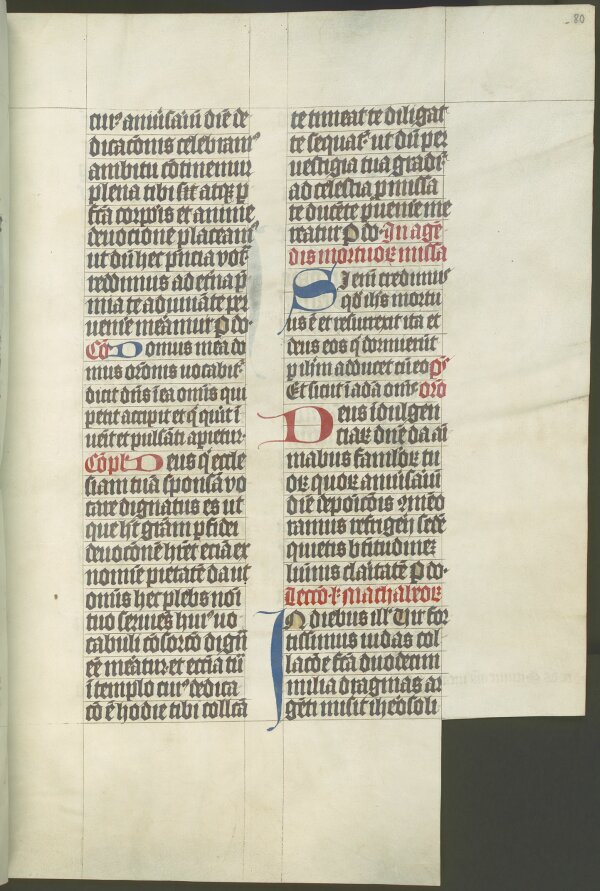 80
cuiꝰ anniv̄saiū diē de
dicac̄onis celebramꝰ
ambitu cōtinemur
plena tibi sit atqꝫ ꝑ
fc̄ta corporis et anime
deuocione placeamꝰ
ut dū hec pn̄cia vota
reddimus ad et̄na p̄
mia te adiuuāte ꝑ
uenire meamur P do
Cō Domus mea do
mus orōnis uocabit̄
dicit dn̄s ī ea omīs qui
petit accipit et q̄ querit ī
uēit et pulsāti aꝑietur
Cōpl Deus q̄ eccle
siam tuā sponsā vo
care dignatus es ut
que hēt grām ꝑ fidei
deuocōnē hr̄et eciā ex
nomīe pietatē da ut
omīs hec plebs noī
tuo seruiēs huiꝰ uo
cabuli cōsorcio digna
eē meatur et eccīa tua
ī templo cuiꝰ dedica
cō ē hodie tibi collc̄a
te timeat te diligat
te sequat̄ ut dū ꝑ
uestigia tua gradit̄
ad celestia ꝓmissa
te ducēte ꝑuenire me
reatur P do In agē
dis mortuoꝝ missa
Si em̄ credimus
qd̓ ih̄s mortu
us ē et resurrexit ita et
deus eos q̄ dormierūt
ꝑ ih̄m adducet cū eo
Et sicut ī adā om̄s orō
Deus īdulgen
ciaꝝ dn̄e da aī
mabus famloꝝ tu
oꝝ quoꝝ anniv̄saiū
diē deposicōis ꝯmēo
ramus refrigerij sedē
quietis btitudineꝫ
luminis claitatē P do
Lecco lꝰ machabeoꝝ
In diebus ill̓ Vir for
tissimus iudas col
lacōe fc̄a duodecim
milia dragmas ar
gēti misit iherosoli